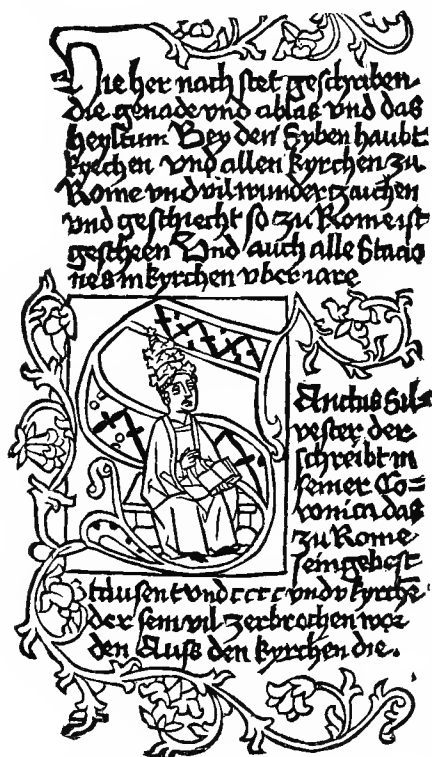 Hie her nach stet geschriben
die genade vnd ablas vnd das
heyltum Bey den Syben haubt
kyrchen vnd allen kyrchen zu
Rome vnd vil wunder tzaichen
vnd geschicht so zu Rome ist
gescheen Vnd auch alle Stacio
nes in kyrchen vber iare
Sanctus Sil-
vester der
schreibt in
seiner Co=
ronica das
zu Rome
sein gebest
tausent vnd cccc vnd v kyrche
der sein vil zerbrochen wor
den Auss den kyrchen die.